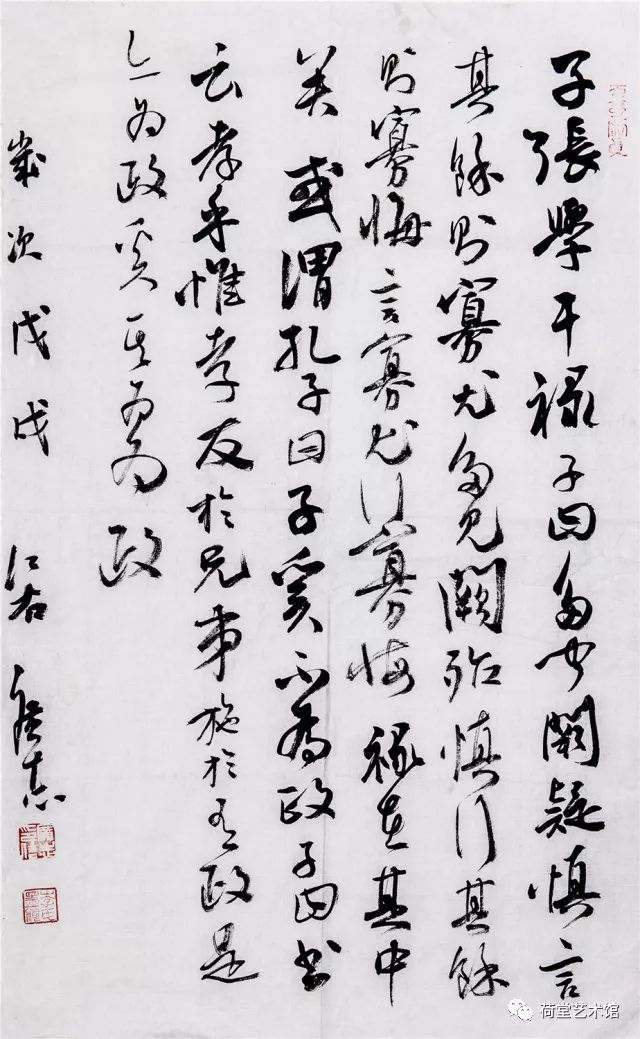 子張學干祿子曰多聞闕疑慎言
其餘則寡尤多見闕殆慎行其餘
則寡悔言寡尤行寡悔祿在其中
矣或謂孔子曰子奚不為政子曰書
云孝乎惟孝友於兄弟施於有政是
亦為政奚其為為政
歲次戊戌 江右
荷堂艺术馆